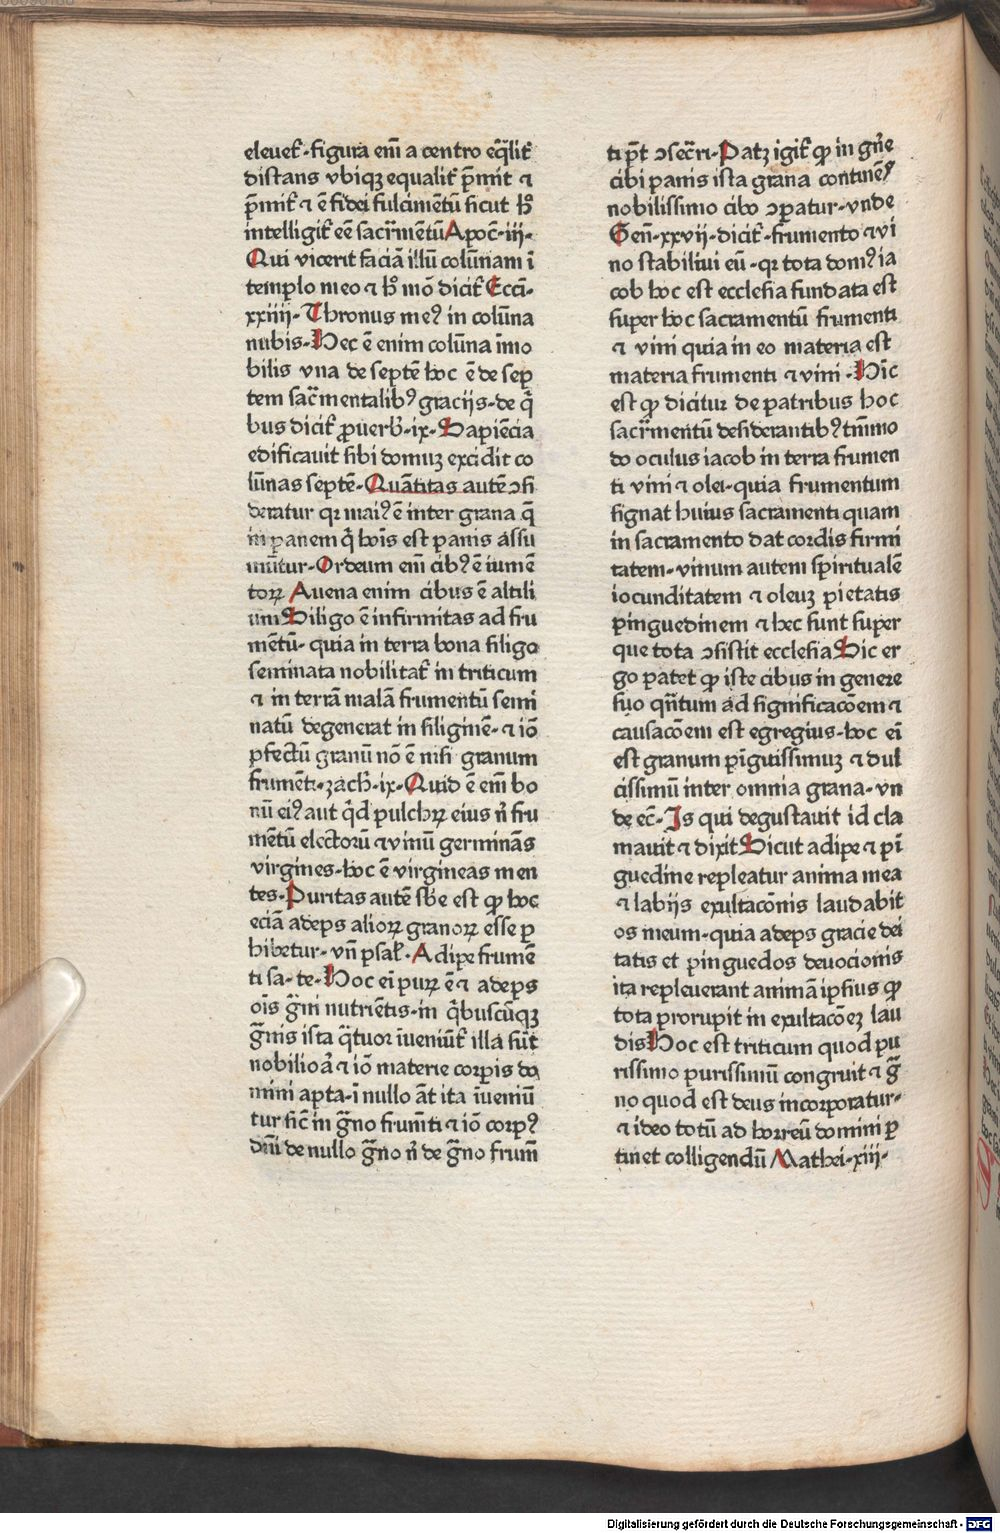 eleuet᷑·figura em̄ a centro eq̄lit᷑
distans vbiqꝫ equalit᷑ p̄mit ⁊
p̄mit᷑ ⁊ ē fidei fulcimētū sicut hº
intelligit᷑ eē sacr̄mētū Apoc̄·iii·
Qui vicerit faciā illū colūnam ī
templo meo ⁊ hº mō dicit᷑ Ecci̅·
xxiiii·Thronus meꝰ in colūna
nubis·Hec ē enim colūna īmo
bilis vna de septē hoc ē de sep
tem sacr̄mentalibꝰ gracijs·de q̄
bus dicit᷑ ꝓuerb̄·ix·Sapiēcia
edificauit sibi domuꝫ excidit co
lūnas septē·Quātitas autē ↄsi
deratur qꝛ maiꝰ ē inter grana q̄
in panem q̄ hoīs est panis assu
mūtur·Ordeum em̄ cibꝰ ē iumē
toꝝ Auena enim cibus ē altili
um Siligo ē infirmitas ad fru
mētū·quia in terra bona siligo
seminata nobilitat᷑ in triticum
⁊ in terrā malā frumentū semi
natū degenerat in siliginē·⁊ iō
ꝑfectū granū nō ē nisi granum
frumēti·zach̄·ix·Quid ē em̄ bo
nū eiꝰ aut q̄d pulchꝝ eius n̄ fru
mētū electorū ⁊ vinū germinās
virgines·hoc ē virgineas men
tes·Puritas autē sb̄e est ꝙ hoc
eciā adeps alioꝝ granoꝝ esse ꝑ
hibetur·vn̄ psal̄·Adipe frumē
ti sa·te·Hoc ei̅ puꝝ ē ⁊ adeps
oīs gr̄ni nutriētis·in q̄buscūqꝫ
gr̄nis ista q̄tuor īueniūt᷑ illa sūt
nobilioā ⁊ iō materie corꝑis do
mini apta·ī nullo āt ita īueniū
tur sic̄ in gr̄no frum̄ti ⁊ iō corpꝰ
dn̄i de nullo gr̄no n̄ de gr̄no frum̄
ti p̄t ↄsec̄ri·Patꝫ igit᷑ ꝙ in gn̄e
cibi panis ista grana continēs
nobilissimo cibo ↄꝑatur·vnde
Gen̄·xxvii·dicit᷑·frumento ⁊ vi
no stabiliui eū·qꝛ tota domꝰ ia
cob hoc est ecclesia fundata est
super hoc sacramentū frumenti
⁊ vini quia in eo materia est
materia frumenti ⁊ vini·Hīc
est ꝙ dicitur de patribus hoc
sacr̄mentū desiderantibꝰ tm̄mo
do oculus iacob in terra frumen
ti vini ⁊ olei·quia frumentum
signat huius sacramenti quam
in sacramento dat cordis firmi
tatem·vinum autem spiritualē
iocunditatem ⁊ oleuꝫ pietatis
pinguedinem ⁊ hec sunt super
que tota ↄsistit ecclesia Sic er
go patet ꝙ iste cibus in genere
suo qn̄tum ad significacōem ⁊
causacōem est egregius·hoc ei̅
est granum pīguissimuꝫ ⁊ dul
cissimū inter omnia grana·vn
de ec̄·Is qui degustauit id cla
mauit ⁊ dixit Sicut adipe ⁊ pī
guedine repleatur anima mea
⁊ labijs exultacōnis laudabit
os meum·quia adeps gracie dei
tatis et pinguedos deuocionis
ita repleuerant animā ipsius ꝙ
tota prorupit in exultacōeꝫ lau
dis Hoc est triticum quod pu
rissimo purissimū congruit ⁊ gr̄
no quod est deus incorporatur·
⁊ ideo totū ad horreū domini ꝑ
tinet colligendū Mathei·xiii·
Digitalisierung gefördert durch die Deutsche Forschungsgemeinschaft - DFG